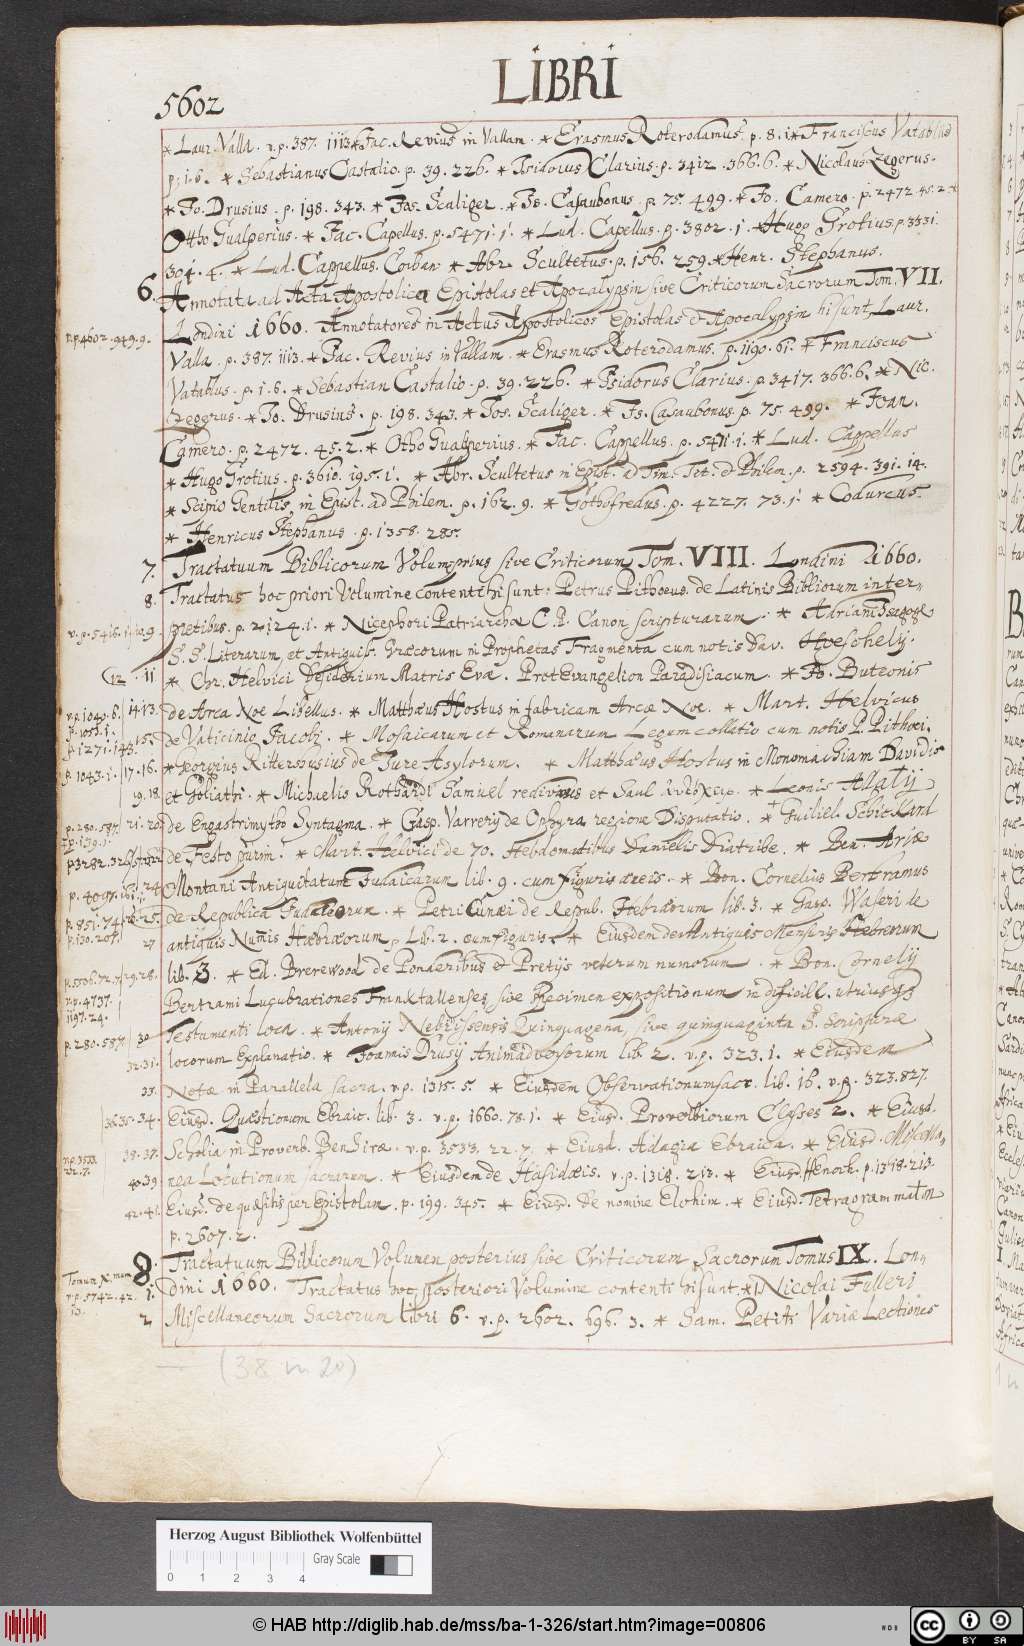 LIBRI
5602
* Laur. Valla. v.p. 387. 1113 * Jac. Revius in Vallam. * Erasmus Roterodamus. p. 8. 1 * Franciscus Vatablus
p. 1. 6. * Sebastianus Castalio. p. 39. 226. * Isidorus Clarius. p. 3412. 366. 6. * Nicolaus Zegerus.
* Jo. Drusius. p. 198. 343. * Jos. Scaliger. * Is. Casaubonus. p. 75. 499. * Jo. Camero. p. 2472. 45. 2. *
Otho Gualperius. * Jac. Capellus. p. 5471. 1. * Lud. Capellus. p. 3802. 1. * Hugo Grotius. p. 3531.
304. 4. * Lud. Cappellus. Corban * Abr. Scultetus. p. 156. 259. * Henr. Stephanus.
6. Annotata ad Acta Apostolica Epistolas et Apocalypsin sive Criticorum Sacrorum Tom. VII.
v.p. 4602. 949. 9. Londini 1660. Annotatores in Actus Apostolicos Epistolas & Apocalypsin hi sunt, Laur.
Valla. p. 387. 1113. * Jac. Revius in Vallam. * Erasmus Roterodamus. p. 1190. 61. * Franciscus
Vatablus. p. 1. 6. * Sebastian Castalio. p. 39. 226. * Isidorus Clarius. p. 3417. 366. 6. * Nic.
Zegerus. * Jo. Drusius. p. 198. 343. * Jos. Scaliger. * Is. Casaubonus. p. 75. 499. * Joan.
Camero. p. 2472. 45. 2. * Otho Gualperius. * Jac. Cappellus. p. 5471. 1. * Lud. Cappellus
* Hugo Grotius. p. 3610. 195. 1. * Abr. Scultetus in Epist. ad Tim. Tit. & Philem. p. 2594. 391. 14.
* Scipio Gentilis in Epist. ad Philem. p. 162. 9. * Gothofredus. p. 4227. 73. 1. * Codurcus.
* Henricus Stephanus. p. 1358. 285.
7. Tractatuum Biblicorum Volum. prius sive Criticorum Tom. VIII. Londini 1660.
8. Tractatus hoc priori Volumine contenti hi sunt: Petrus Pithoeus de Latinis Bibliorum inter-
pretibus. p. 2124. 1. * Nicephori Patriarchae C.P. Canon scripturarum. * Adriani Isagoge
S. S. Literarum, et Antiquiss. Graecorum in Prophetas Fragmenta cum notis Dav. Hoeschelij.
12. 11 * Chr. Helvici Desiderium Matris Evae. ProtEvangelion Paradisiacum. * Jo. Buteonis
v.p. 1040. 6. 14. 13. de Arca Noe Libellus. * Matthaeus Hostus in fabricam Arcae Noe. * Mart. Helvicus
p. 1271. 143. 15. de Vaticinio Jacobi. * Mosaicarum et Romanarum Legum collatio cum notis P. Pithoei.
p. 1043. 1. 17. 16. * Georgius Rittershusius de Jure Asylorum. * Matthaeus Hostus in Monomachiam Davidis
19. 18. et Goliathi. * Michaelis Rothardi Samuel redivivus et Saul * Leonis Allatij
p. 280. 587. 21. 20. de Engastrimytho Syntagma. * Gasp. Varrerij de Ophyra regione Disputatio. * Guiliel. Schickard
de Festo purim. * Mart. Helvici de 70. Hebdomatibus Danielis Diatribe. * Ben. Ariae
24. Montani Antiquitatum Judaicarum lib. 9. cum figuris aeneis. * Bon. Cornelius Bertramus
p. 851. 74. 26. 25. de Republica Judaeorum. * Petri Cunaei de Repub. Hebraeorum lib. 3. * Gasp. Waseri de
p. 150. 207. 27 antiquis Numis Hebraeorum. Lib. 2. cum figuris. * Eiusdem de Antiquis Mensuris Hebraeorum
29. 28. lib. 3. * Ed. Brerewood de Ponderibus & Pretijs veterum numorum. * Bon. Cornelij
v.p. 4737. Bertrami Lucubrationes Franktallenses, sive Specimen expositionum in difficill. utriusq;
1197. 24.
p. 280. 587. 30. Testamenti loca. * Antonij Nebrissensis Quinquagena, sive quinquaginta S. Scripturae
32. 31. locorum Explanatio. * Joannis Drusij Animadversorum lib. 2. v.p. 323. 1. * Eiusdem
33. Notae in Parallela sacra. v.p. 1315. 5. * Eiusdem Observationum sacr. lib. 16. v.p. 323. 827.
36. 35. 34. Eiusd. Quaestionum Ebraic. lib. 3. v.p. 1660. 78. 1. * Eiusd. Proverbiorum Classes 2. * Eiusd.
v.p. 3533. 22. 7. 38. 37. Scholia in Proverb. Ben Sirae. v.p. 3533. 22. 7. * Eiusd. Adagia Ebraica. * Eiusd. Miscella-
40. 39 nea Locutionum sacrarum. * Eiusdem de Hasidaeis. v.p. 1318. 213. * Eiusd. Henoch. p. 1318. 213.
42. 41. Eiusd. de quaesitis per Epistolam. p. 199. 345. * Eiusd. de nomine Elohim. * Eiusd. Tetragrammaton
p. 2607. 2.
8. Tractatuum Biblicorum Volumen posterius sive Criticorum Sacrorum Tomus IX. Lon-
v.p. 5742. 42. 1. dini 1660. Tractatus hoc posteriori Volumine contenti hi sunt. * Nicolai Fulleri
2 Miscellaneorum Sacrorum libri 6. v.p. 2602. 696. 3. * Sam. Petiti Variae Lectiones
(38 20)
Herzog August Bibliothek Wolfenbüttel
0 1 2 3 4 Gray Scale
© HAB http://diglib.hab.de/mss/ba-1-326/start.htm?image=00806
cc BY SA